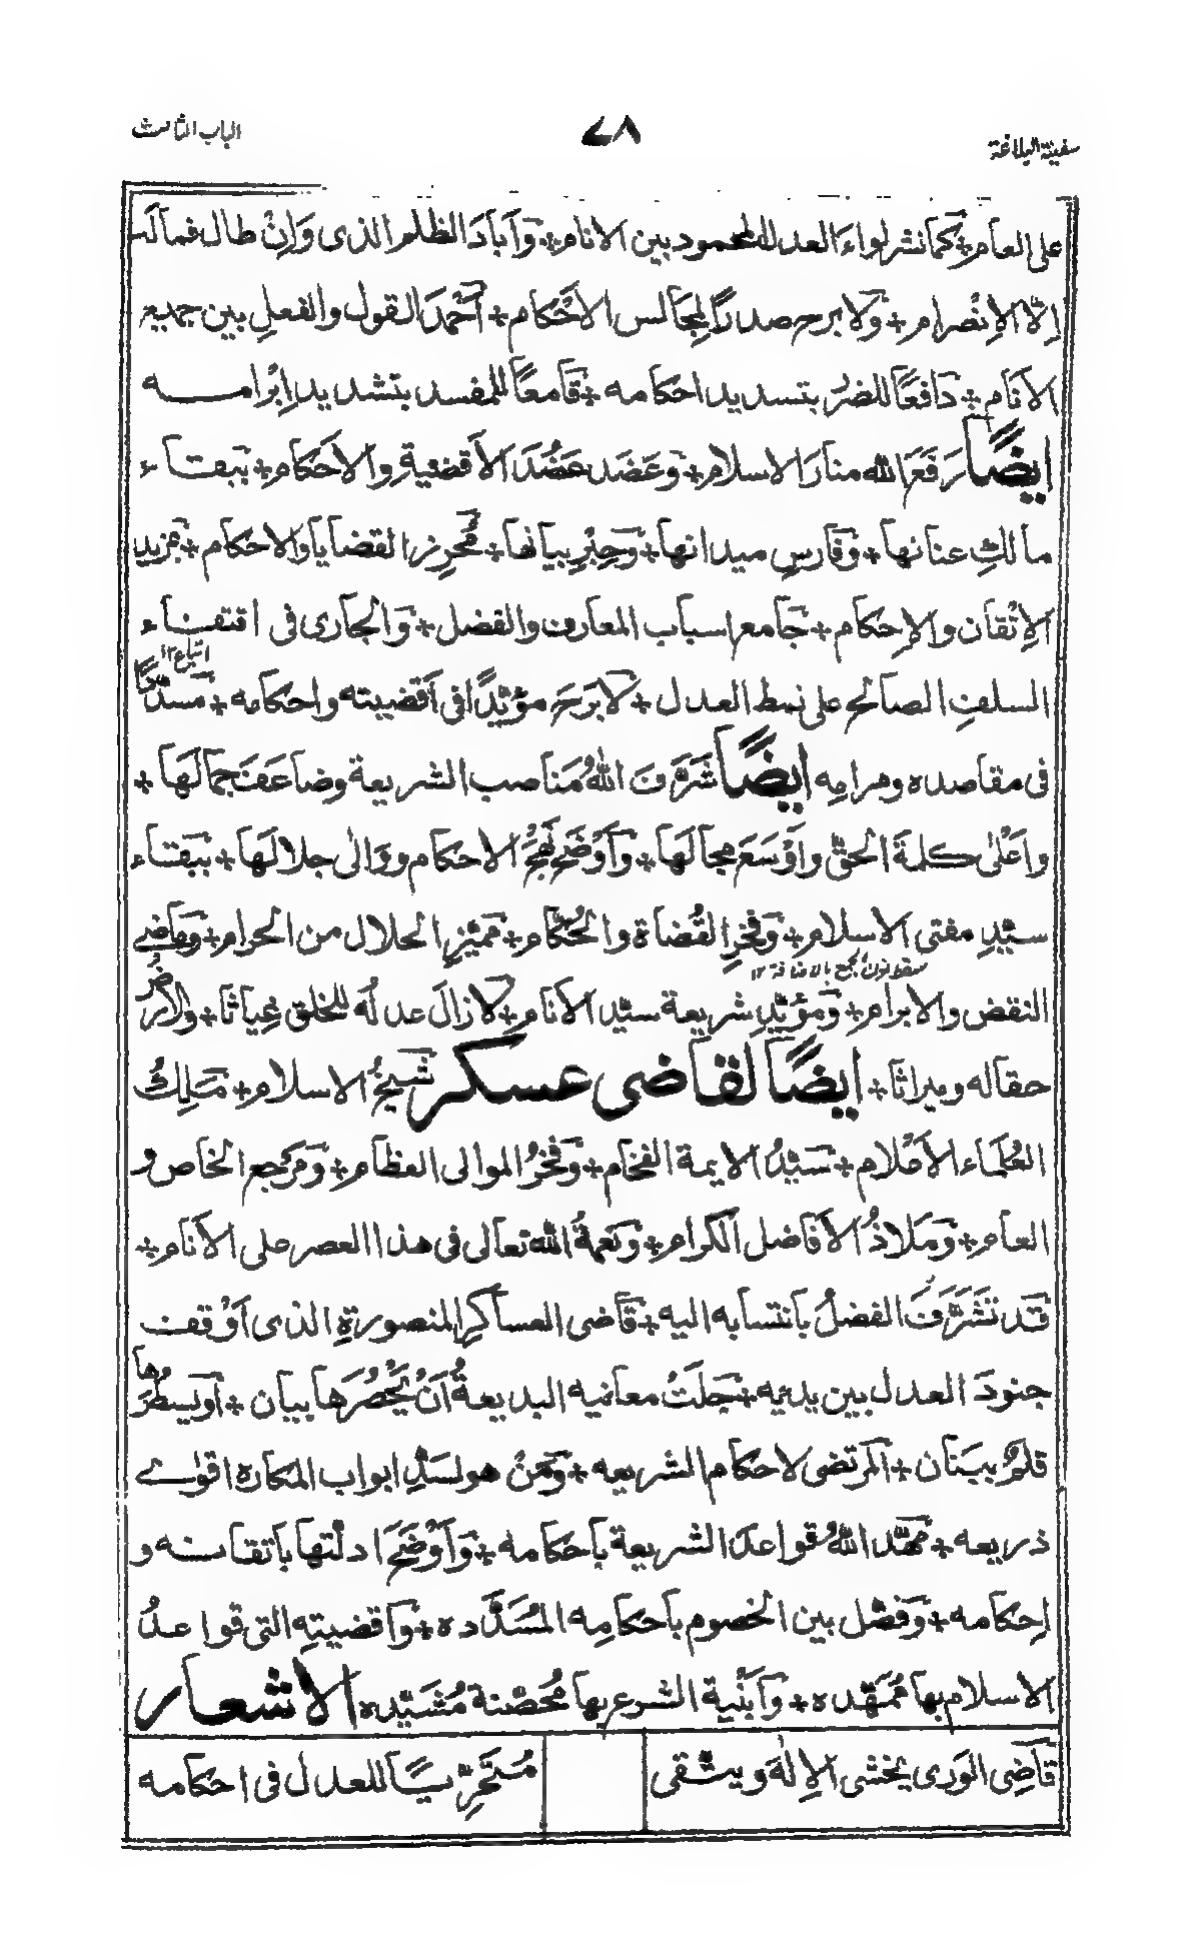 سفينة البلاغة ٧٨ الباب الثالث
على العام٭ كما نشر لواءَ العدل المحمود بين الانام٭ وَاَبادَ الظلم الذى وَاِنْ طال فماله
اِلّا الاِنْصرام٭ وَلا برح صدرًا لِمجَالس الاَحْكام٭ اَحْمَدَ القول والفعلِ بين جميع
الاَنام٭ دَافعًا للضرُ بتسديد احكامه٭ قامعًا للمفسد بتشديد اِبْرامـــه
ايضًا رَفَعَ الله منارَ الاسلام٭ وَعَضَد عَضُدَ الاَقضيةِ والاَحْكامِ٭ ببقـاء
مالكِ عنانها٭ وَفارسِ ميدانها٭ وَحِبْرِ بيانها٭ مُحْرِز القضايا والاحكام٭ بمزيد
الاِتْقان والاِحكام٭ جَامع اسباب المعارف والفضل٭ وَالجارى فى اقتفـاء
اتباع ١٢
السلفِ الصالح على نمط العدل٭ لَا بَرَحَ مؤيّدًا فى اَقضيته واحكامه٭ مسدّدًا
فى مقاصده ومرامِه ايضًا شَرَّفَ اللهُ مَناصب الشريعة وضاعَفَ جمالَهَا٭
واَعْلىٰ كلمةَ الحقّ واَوْسَعَ مجالَهَا٭ وَاَوْضَحَ نَهْجَ الاحكام وَوَالىٰ جلالَهَا٭ ببقـاء
سيّدِ مفتى الاسلام٭ وَفخرِ القُضاة والحُكّام٭ مميّزِ الحلال من الحرام٭ وَمَاضى
سقط نون الجمع بالاضافة ١٢
النقض والابرام٭ وَمؤيّدِ شريعة سيّد الاَنام٭ لَا زالَ عدلُه للخلق غياثًا٭ والارضُ
حقاله وميراثا٭ ايضًا لقاضى عسكر شيخُ الاسلام٭ مَلِكُ
العُلماء الاَعْلام٭ سَيّدُ الايمة الفخام٭ وَفَخرُ الموالى العظام٭ وَمَرْجع الخاص و
العام٭ وَمَلاذُ الاَفاضل الكرام٭ وَنعمةُ الله تعالى فى هذا العصر على الاَنام٭
قـد تَشَرَّفَ الفضلُ بانتسابه اليه٭ قاضى العساكرِ المنصورةِ الذى اَوْقف
جنودَ العدل بين يديه٭ جَلَتْ معانيه البديعةُ اَنْ يَحْصُرَها بيان٭ اَو يَسطُرَها
قلمٌ ببَنان٭ المرتضى لاحكام الشريعه٭ وَمَنْ هو لسَدِّ ابواب المكاره اقوٰى
ذريعه٭ مهّد اللهُ قواعدَ الشريعة باحكامه٭ وَاَوْضَحَ ادلّتها باتقانـه و
اِحكامه٭ وَفصّل بين الخصوم باحكامِه المُسَدَّده٭ وَاقضيتِهِ التى قواعدُ
الاسلام بها مُمَهّده٭ وَاَبْنية الشرع بها مُحَصّنة مُشَيّده الاشعار
قاضِى الوَرى يخشى الاِلٰهَ ويتّقى مُتَحَرِّيـًا للعدل فى احكامه